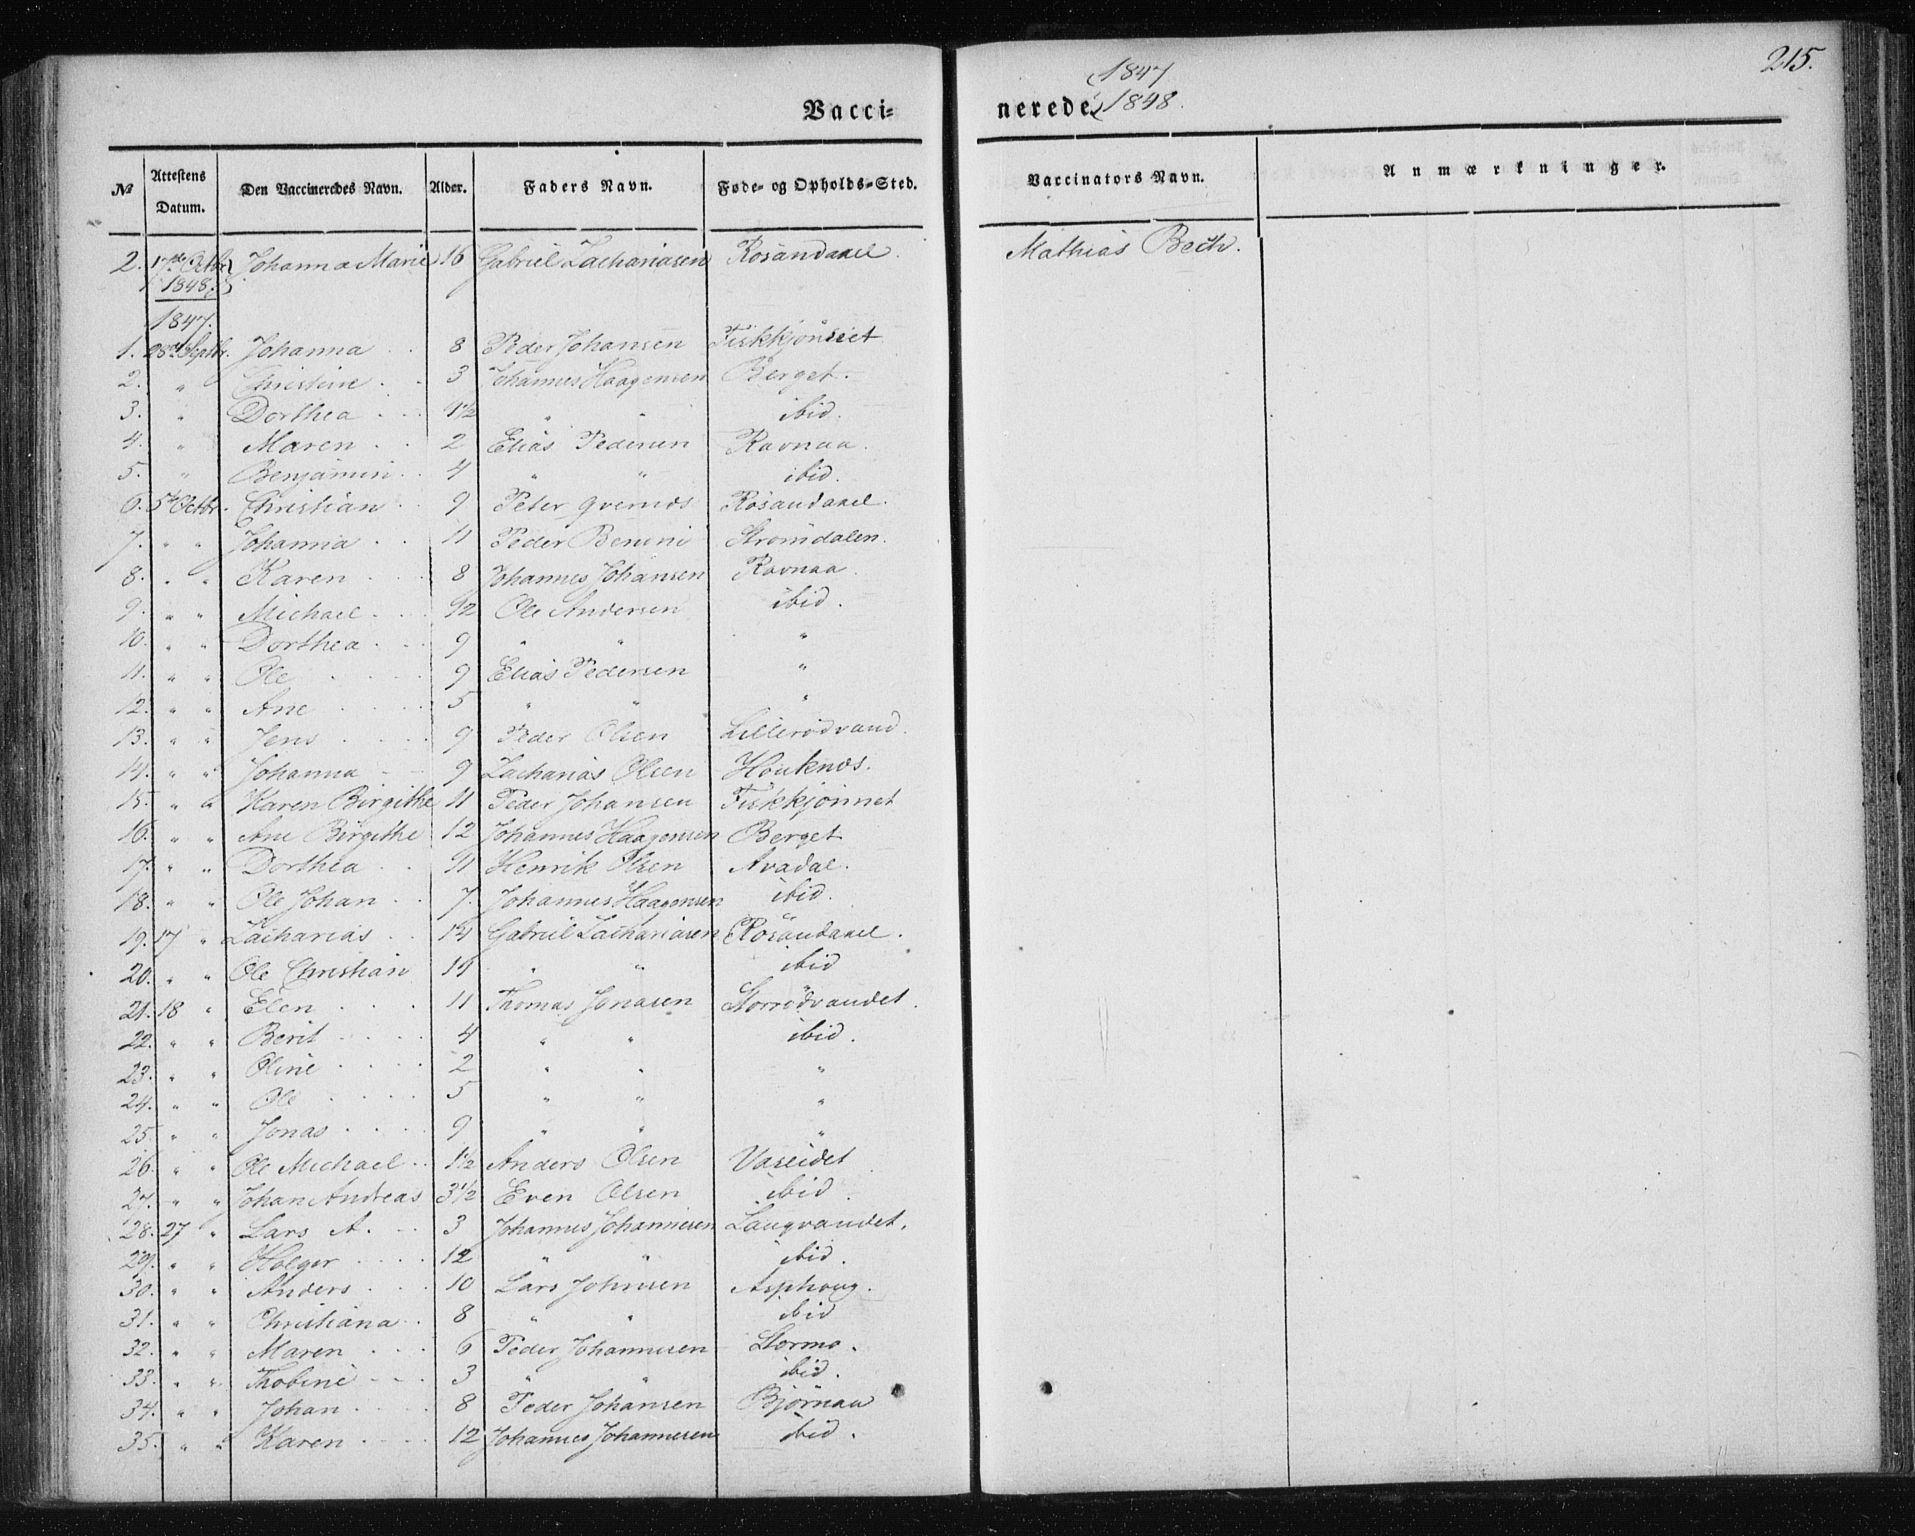 215.
Vacci- nerede 1847 1848.
№ Attestens Datum. Den Vaccineredes Navn. Alder. Faders Navn. Føde- og Opholds-Sted. Vaccinators Navn. Anmærkninger.
2. 17de Octbr 1848 Johanna Marie 16 Gabriel Zachariasen Røsandaael. Mathias Bech.
1847.
1. 28de Septbr. Johanna 8 Peder Johansen
2. " Christine 3 Johannes Haagensen Berget.
3. " Dorthea 1½ " " ibid.
4. " Maren 2 Elias Pedersen Ravnaa
5. " Benjamin 4 " " ibid.
6. 5te Octbr. Christian 9 Peter Røsandaael.
7. " " Johanna 11 Peder Strømdalen.
8. " " Karen 8 Johannes Johansen Ravnaa
9. " " Michael Ole Andersen ibid.
10. " " Dorthea 9 " " "
11. " " Ole 9 Elias Pedersen "
12. " " Ane 5 " " "
13. " " Jens 9 Peder Olsen Lillerødvand.
14. " " Johanna 9 Zacharias Olsen Høuknes.
15. " " Karen Birgithe 11 Peder Johansen Fiskkjønnet
16. " " Ane Birgithe 12 Johannes Haagensen Berget
17. " " Dorthea 11 Henrik Olsen Avadal.
18. " " Ole Johan 7. Johannes Haagensen ibid.
19. 17 " Zacharias 14 Gabriel Zachariasen Røsandaael.
20. " " Ole Christian " " ibid
21. 18 " Elen 11 Thomas Jonasen Storrødvandet.
22. " " Berit 4 " " ibid.
23. " " Oline 2 " " "
24. " " Ole 5 " " "
25. " " Jonas 9 " " "
26. " " Ole Michael 1½ Anders Olsen Vaseidet
27. " " Johan Andreas 3½ Even Olsen ibid.
28. 27 " Lars A. 3 Johannes Johannesen Langvandet.
29. " " Holger 12 " " ibid.
30. " " Anders 10 Lars Johnsen Asphoug.
31. " " Christiana 8 " " ibid
32. " " Maren 6 Peder Johannesen Stormo.
33. " " Thobine 3 " " ibid.
34. " " Johan 8 Peder Johansen Bjørnaa
35. " " Karen 12 Johannes Johannesen ibid.